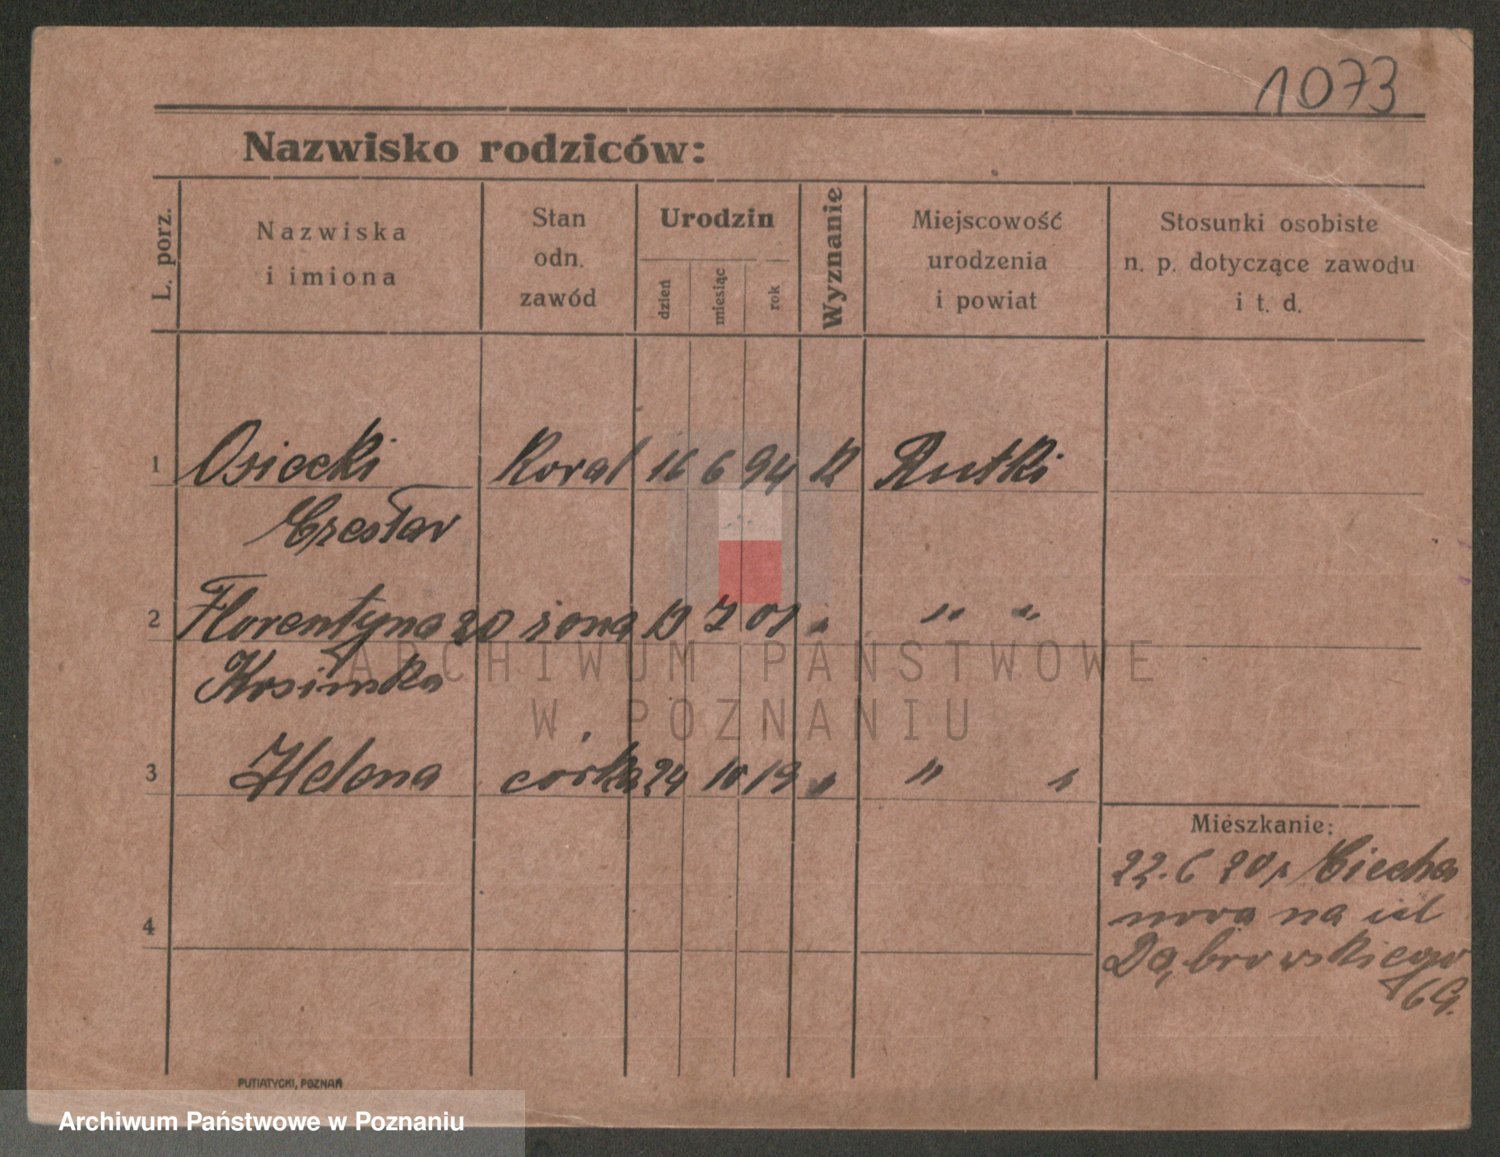 1073
Nazwisko rodziców:
L. porz.
Nazwiska
i imiona
Stan
odn.
zawód
Urodzin
dzień
miesiąc
rok
Wyznanie
Miejscowość
urodzenia
i powiat
Stosunki osobiste
n. p. dotyczące zawodu
i t. d.
1 Osiecki Koval 16 6 94 R Rutki
Czesłav
2 Florentyna zd żona 7 01 " " "
3 Helena córka 24 10 19 " " "
4
Mieszkanie:
22.6 20 r Ciecha
nova na ul
Dąbrowskiego
PUTIATYCKI, POZNAŃ
ARCHIWUM PAŃSTWOWE
W POZNANIU
Archiwum Państwowe w Poznaniu